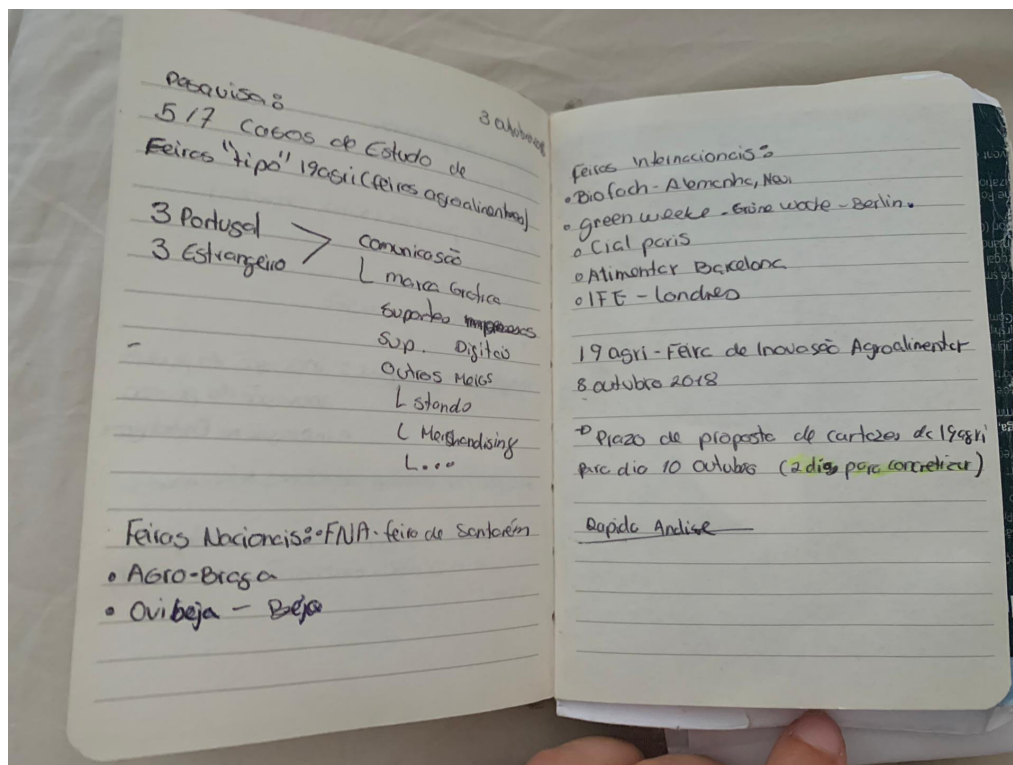 3 outubro
Pesquisa:
5/7 Casos de Estudo de
Feiras "tipo" 19agri (feiras agroalimentares)
3 Portugal
3 Estrangeiro
comunicasão
L marca Grafica
Suportes impressos
Sup. Digitais
Outros Meios
L stands
L Mershandising
L...
Feiras Nacionais: • FNA - feira de Santarém
• AGro-Braga
• Ovibeja - Beja
Feiras Internacionais:
• Biofach - Alemanha,
• green weeke - Grüne woche - Berlin.
• Cial paris
• Alimentar Barcelona
• IFE - Londres
19 agri - Feira de Inovasão Agroalimentar
8 outubro 2018
Prazo de proposta de cartazes da 19agri
para dia 10 Outubro (2 dias para concretizar)
Rapida Análise